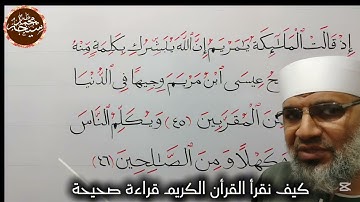 إِذْ قَالَتِ ٱلْمَلَٰٓئِكَةُ يَٰمَرْيَمُ إِنَّ ٱللَّهَ يُبَشِّرُكِ بِكَلِمَةٍ مِّنْهُ
عِيسَى ٱبْنُ مَرْيَمَ وَجِيهًا فِى ٱلدُّنْيَا
ٱلْمُقَرَّبِينَ (٤٥) وَيُكَلِّمُ ٱلنَّاسَ
وَكَهْلًا وَمِنَ ٱلصَّٰلِحِينَ (٤٦)
كيف نقرأ القرأن الكريم قراءة صحيحة